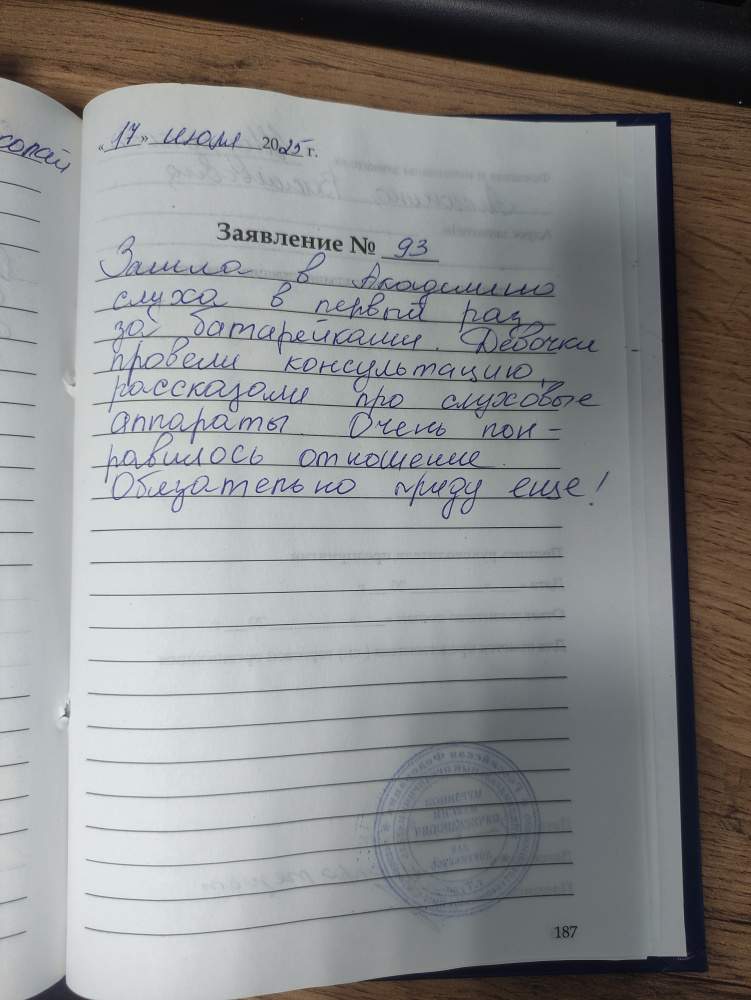 «17» июля 2025 г.
Заявление № 93
Зашла в Академию
слуха в первый раз
за батарейками. Девочки
провели консультацию,
рассказали про слуховые
аппараты. Очень пон-
равилось отношение.
Обязательно приду еще!
187